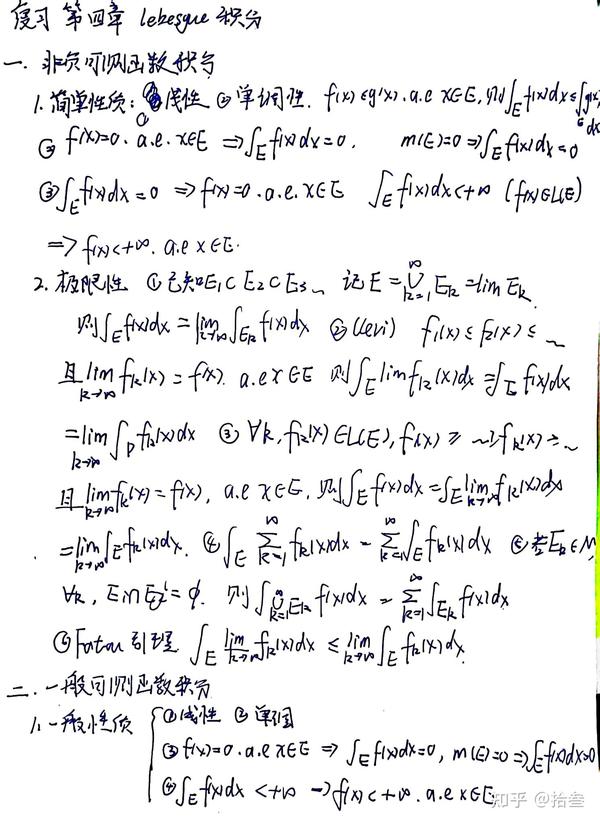 复习 第四章 lebesgue 积分
一. 非负可测函数积分
1. 简单性质: ① 线性 ② 单调性. f(x)≤g(x). a.e x∈E, 则∫_E f(x)dx≤∫_E g(x)dx
③ f(x)=0. a.e. x∈E ⇒∫_E f(x)dx=0. m(E)=0⇒∫_E f(x)dx=0
③∫_E f(x)dx=0 ⇒f(x)=0.a.e.x∈E ∫_E f(x)dx<+∞ (f(x)∈L(E))
⇒f(x)<+∞. a.e x∈E.
2. 极限性 ①已知E₁⊂E₂⊂E₃~ 记E=∪_{k=1}^∞ E_k=lim E_k.
则∫_E f(x)dx=lim_{k→∞}∫_{E_k} f(x)dx ②(levi) f₁(x)≤f₂(x)≤~
且lim_{k→∞} f_k(x)=f(x). a.e x∈E 则∫_E lim f_k(x)dx=∫_E f(x)dx
=lim_{k→∞}∫_D f_k(x)dx ③ ∀k, f_k(x)∈L(E), f₁(x)≥~≥f_k(x)≥~
且lim_{k→∞} f_k(x)=f(x), a.e x∈E, 则∫_E f(x)dx=∫_E lim_{k→∞} f_k(x)dx
=lim_{k→∞}∫_E f_k(x)dx. ④∫_E Σ_{k=1}^∞ f_k(x)dx=Σ_{k=1}^∞∫_E f_k(x)dx ⑤若E_k∈M,
∀k, E_i∩E_j=ϕ. 则∫_{∪_{k=1}^∞ E_k} f(x)dx=Σ_{k=1}^∞∫_{E_k} f(x)dx
Fatou 引理 ∫_E lim_{k→∞} f_k(x)dx≤lim_{k→∞}∫_E f_k(x)dx.
二. 一般可测函数积分
1. 一般性质 ①线性 ②单调
③f(x)=0.a.e x∈E ⇒∫_E f(x)dx=0, m(E)=0⇒∫_E f(x)dx=0
④∫_E f(x)dx<+∞ →f(x)<+∞.a.e x∈E
知乎 @拾叁